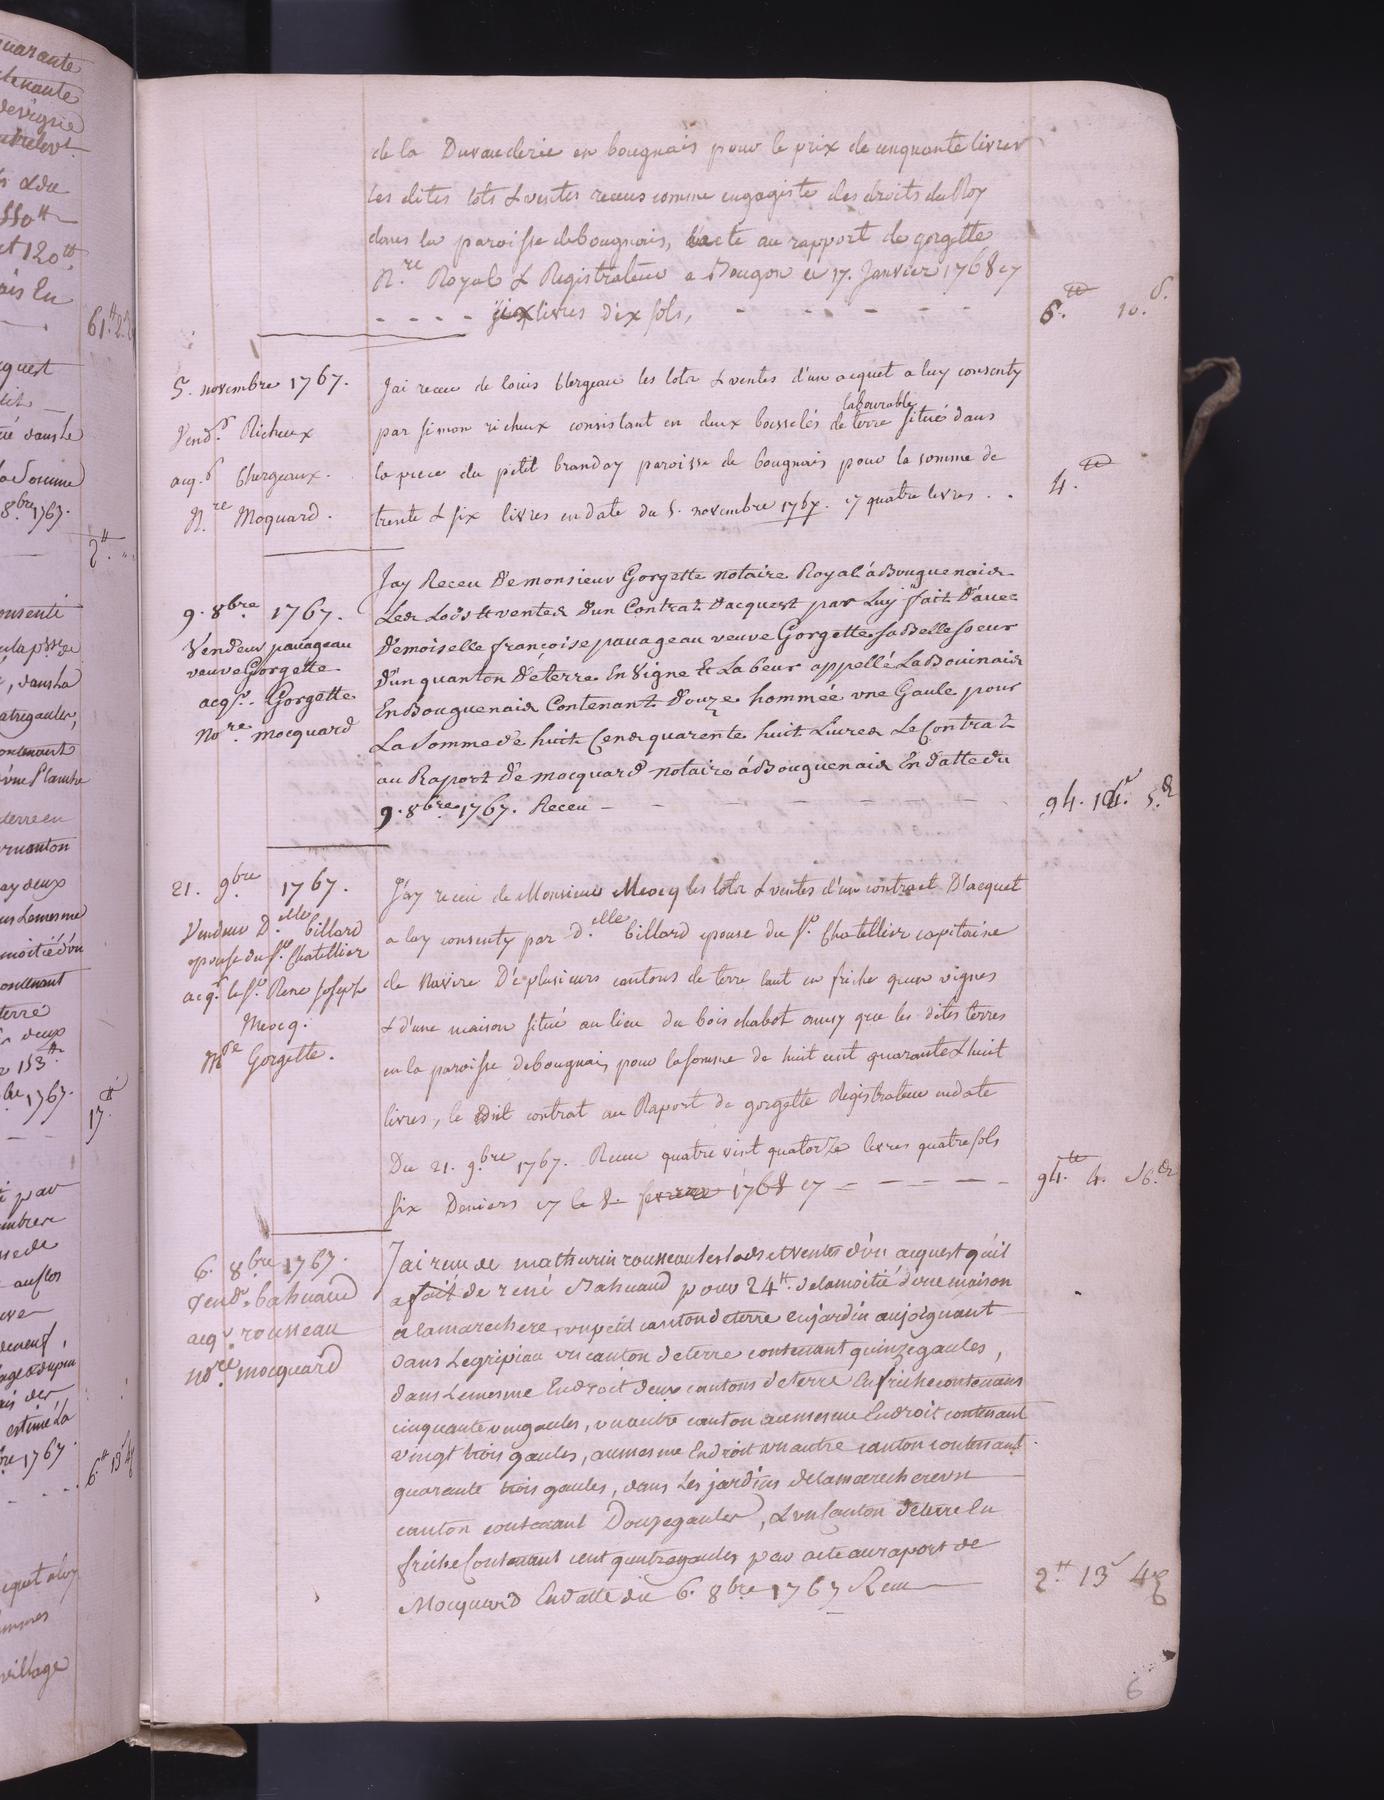 de la Duvauderie en bougnais pour le prix de cinquante livres
les dites lots & ventes receus comme engagiste des droits du Roy
dans la paroisse de bougnais, l'acte au rapport de gorgette
N.re Royal & Registrateur a Bougon le 17. Janvier 1768 cy
- - - - six livres dix sols, - - - - - -
6.tt 10.s
5. novembre 1767.
Vend.r Richeux
acq.r Clergeaux.
N.re Moquard.
J'ai receu de louis Clergeau les lots & ventes d'un acquet a luy consenty
par simon richeux consistant en deux boisselés de terre labourable situé dans
la piece du petit branday paroisse de bougnais pour la somme de
trente & six livres en date du 5. novembre 1767. cy quatre livres . .
4.tt
9. 8bre 1767.
Vendeur pauageau
veuve Gorgette
acq.r. Gorgette
No.re mocquard
Jay Receu De monsieur Gorgette notaire Royal á Bouguenais
Les Lods et ventes D'un Contrat Dacquest par Luy fait D'avec
Demoiselle françoise pauageau veuve Gorgette sa Belle soeur
D'un quanton De terre En Vigne et Labeur appellé La Bouinais
En Bouguenais Contenant Douze hommée une Gaule pour
La somme de huit Cens quarente huit Livres Le Contrat
au Raport De mocquard notaire á Bouguenais En datte du
9. 8bre 1767. Receu - - - - - - -
94. 4.s 5.d
21. 9bre 1767.
Vendeur D.elle billard
epouse du S.r Chatellier
acq.r le S.r Rene Joseph
Meocq.
N.re Gorgette.
J'ay receu de Monsieur Meocq les lots & ventes d'un contract D'acquet
a luy consenty par D.elle billard epouse du S.r Chatellier capitaine
de Navire De plusieurs cantons de terre tant en friche qu'en vignes
& d'une maison situé au lieu du bois chabot ainsy que les dites terres
en la paroisse de bougnais pour la somme de huit cent quarante & huit
livres, le dit contrat au Raport de gorgette Registrateur en date
Du 21. 9bre 1767. Receu quatre vint quatorze livres quatre sols
six Deniers cy le 8. fevrier 1768 cy - - - - -
94.tt 4. s6.d
6. 8bre 1767.
Vend.r bahuaud
acq.r rousseau
no.re mocquard
J'ai recu de mathurin rousseau les lods et ventes d'un acquest qu'il
a fait de rené Bahuaud pour 24.tt de la moitié d'une maison
a la marechere, un petit canton de terre en jardin au joignant
dans Le gripiau un canton de terre contenant quinze gaules,
dans Le mesme Endroit deux cantons de terre En friche contenans
cinquante une gaules, un autre canton au mesme Endroit contenant
vingt trois gaules, au mesme Endroit un autre canton contenant
quarante trois gaules, dans Les jardins de la marechere un
canton contenant Douze gaules, & un Canton de terre En
friche Contenant cent quatre gaules par acte au raport de
Mocquard En datte du 6. 8bre 1767 Recu
2.tt 13s 4d
6